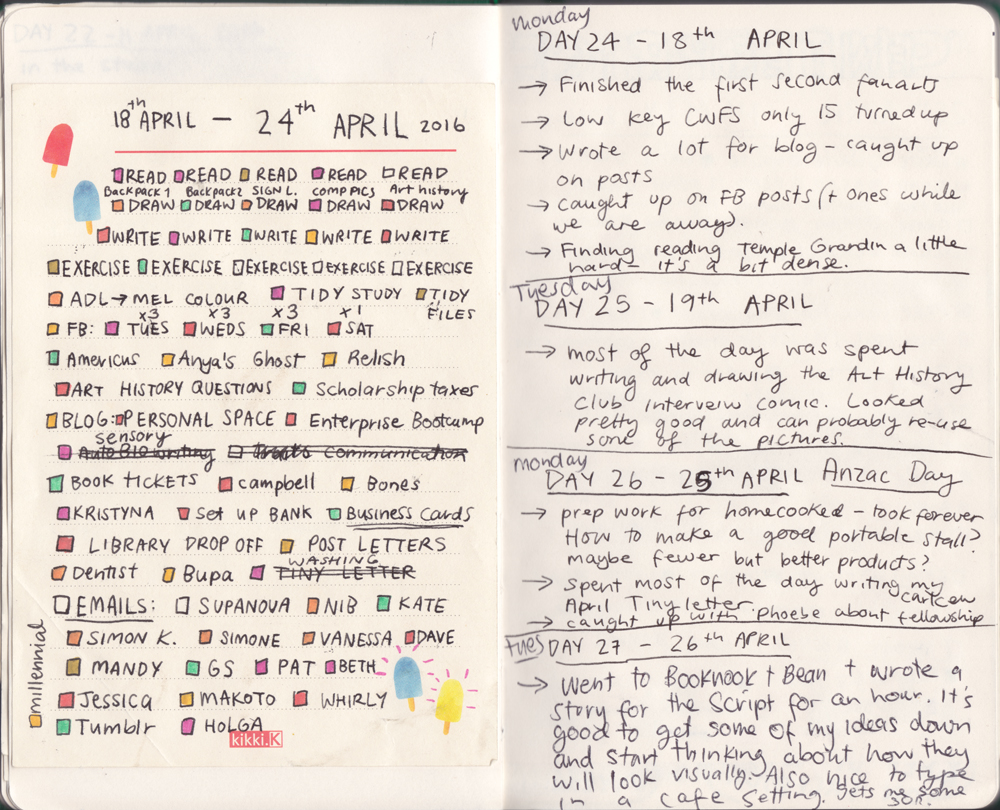 18th APRIL – 24th APRIL 2016
READ READ READ READ READ
Backpack 1 Backpack2 SIGN L. COMP PICS Art history
DRAW DRAW DRAW DRAW DRAW
WRITE WRITE WRITE WRITE WRITE
EXERCISE EXERCISE EXERCISE EXERCISE EXERCISE
ADL → MEL COLOUR TIDY STUDY TIDY FILES
x3 x3 x3 x1
FB: TUES WEDS FRI SAT
Americus Anya's Ghost Relish
ART HISTORY QUESTIONS Scholarship taxes
BLOG: PERSONAL SPACE Enterprise Bootcamp
sensory
Auto Bio writing communication
BOOK TICKETS campbell Bones
KRISTYNA Set UP BANK Business cards
LIBRARY DROP OFF POST LETTERS
WASHING
Dentist Bupa TINY LETTER
EMAILS: SUPANOVA NIB KATE
SIMON K. SIMONE VANESSA DAVE
MANDY GS PAT BETH
Jessica MAKOTO WHIRLY
Tumblr HOLGA
millennial
kikki.K
monday
DAY 24 – 18th APRIL
→ Finished the first second fanarts
→ Low key CWFS only 15 turned up
→ Wrote a lot for blog – caught up
on posts
→ Caught up on FB posts (+ ones while
we are away).
→ Finding reading Temple Grandin a little
hard – it's a bit dense.
Tuesday
DAY 25 – 19th APRIL
→ most of the day was spent
writing and drawing the Art History
Club interview comic. Looked
pretty good and can probably re-use
some of the pictures.
monday
DAY 26 – 25th APRIL Anzac Day
→ prep work for homecooked – took forever
How to make a good portable stall?
maybe fewer but better products?
→ Spent most of the day writing my
April Tiny letter.
→ caught up with Phoebe about fellowship
Tues DAY 27 – 26th APRIL
→ Went to Booknook + Bean + wrote a
story for the Script for an hour. It's
good to get some of my ideas down
and start thinking about how they
will look visually. Also nice to type
in a cafe setting. Gets me some